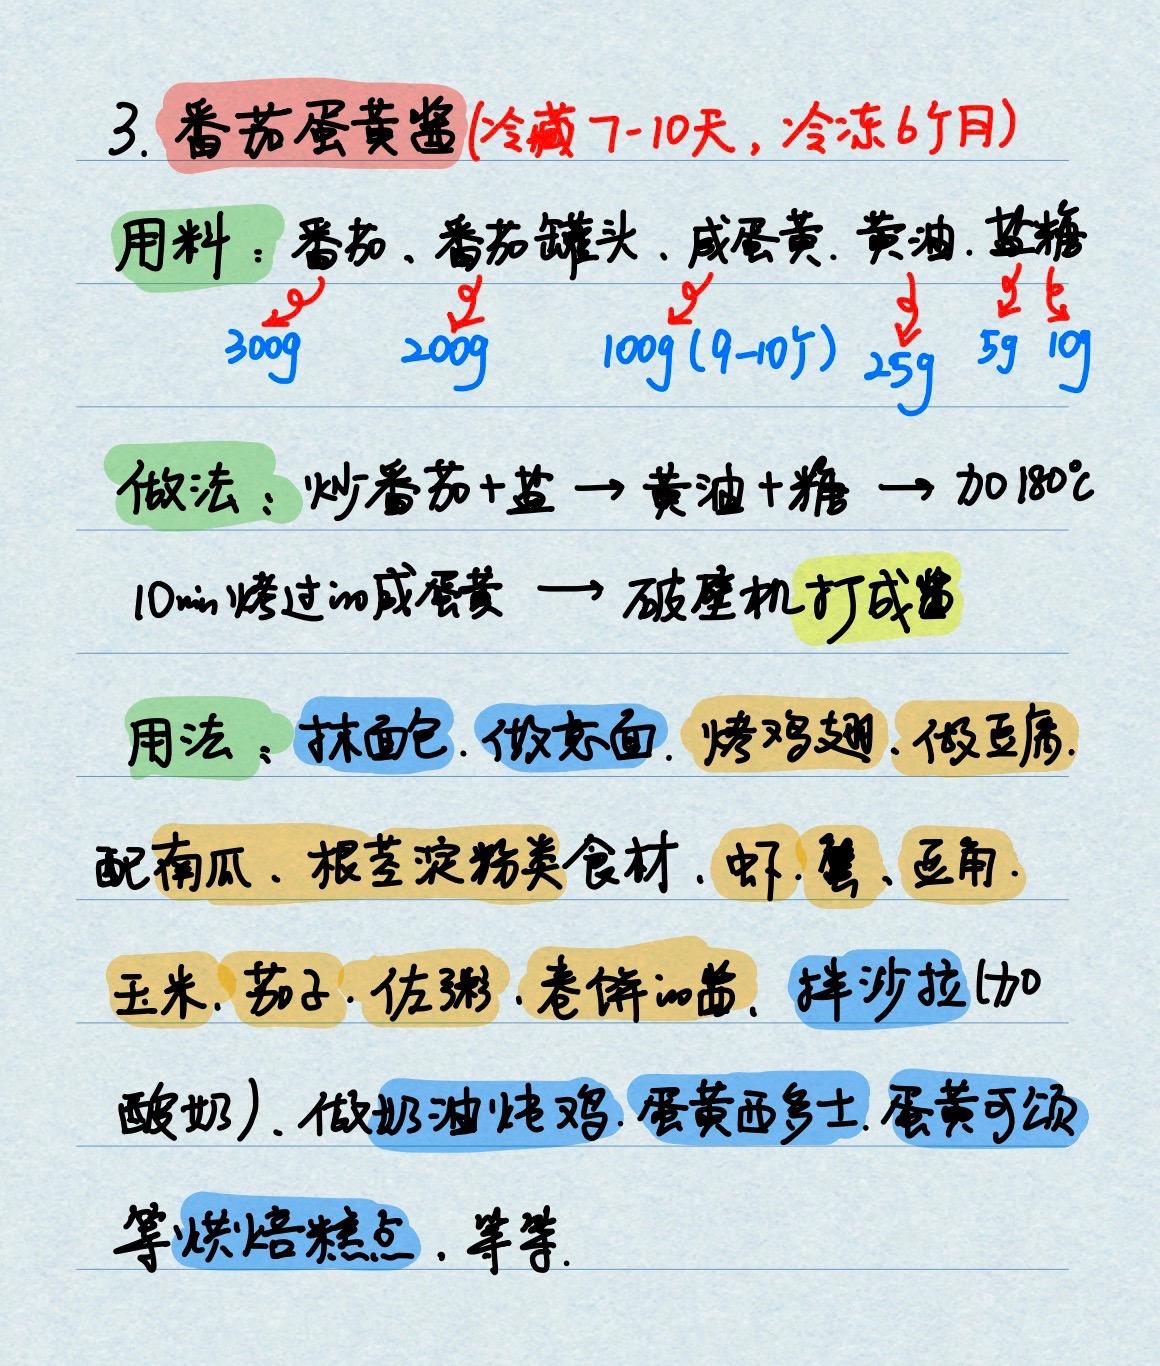 3. 番茄蛋黄酱(冷藏7-10天，冷冻6个月)
用料：番茄、番茄罐头、咸蛋黄.黄油.盐糖
300g 200g 100g(9-10个) 25g 5g 10g
做法：炒番茄+盐→黄油+糖→加180℃
10min烤过的咸蛋黄→破壁机打成酱
用法：抹面包.做意面.烤鸡翅.做豆腐.
配南瓜、根茎淀粉类食材.虾.蟹、豆角.
玉米.茄子.佐粥.卷饼的酱、拌沙拉(加
酸奶)、做奶油炖鸡.蛋黄西多士.蛋黄可颂
等烘焙糕点.等等.